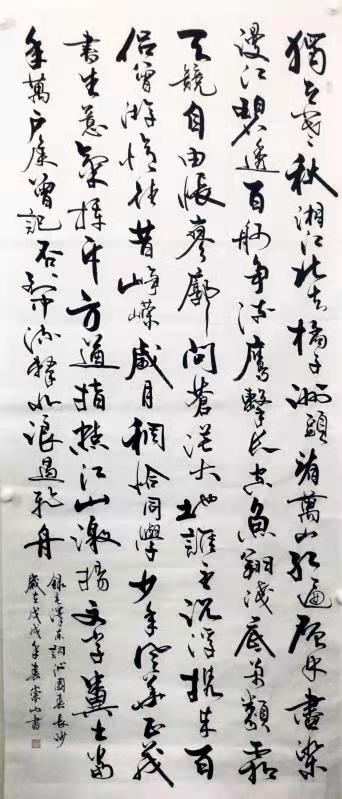 獨立寒秋湘江北去橘子洲頭看萬山紅遍層林盡染
漫江碧透百舸争流鷹擊长空魚翔淺底万類霜
天競自由悵寥廓問蒼茫大地誰主沉浮携来百
侣曾游憶往昔崢嶸歲月稠恰同學少年風華正茂
書生意氣揮斥方遒指點江山激揚文字糞土當
年萬户侯曾記否到中流擊水浪遏飛舟
録毛澤东詞沁園春長沙
歲在戊戌年春崇山書